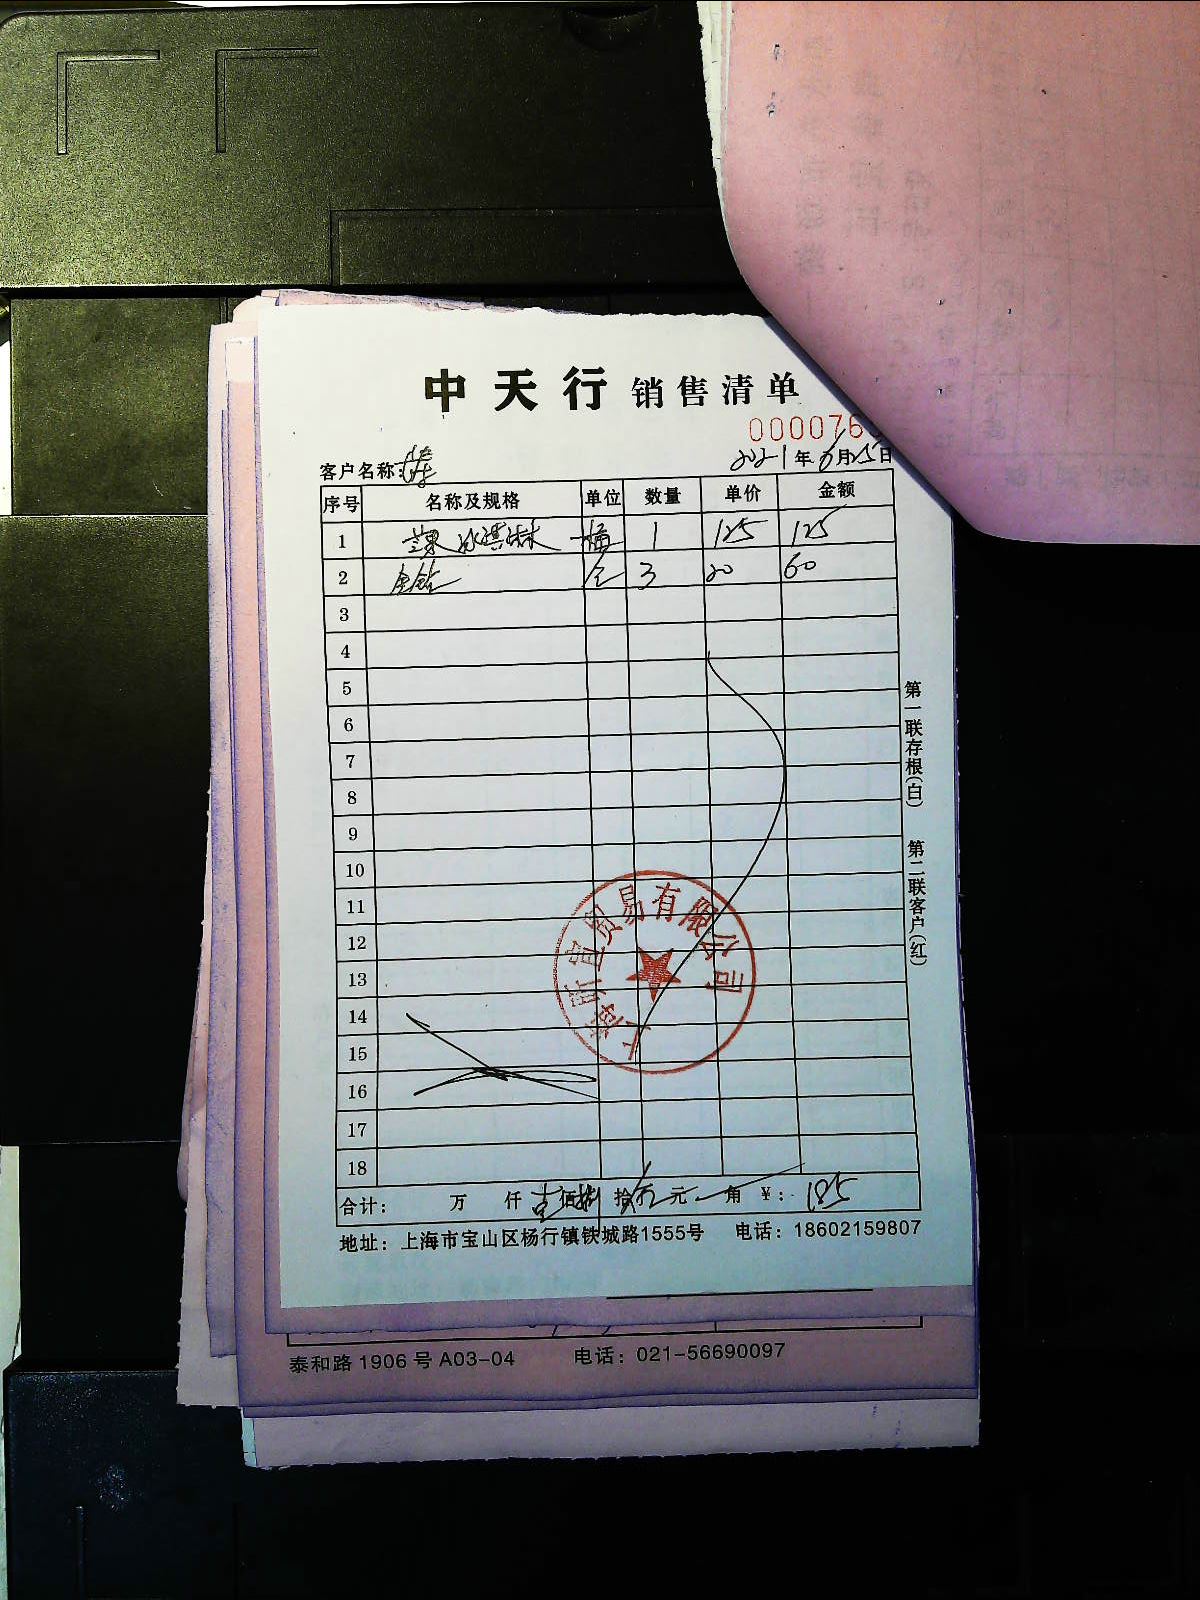 中天行 销售清单
000076
客户名称:
2021年6月25日
序号 名称及规格 单位 数量 单价 金额
1 芒果冰淇淋 桶 1 125 125
2 金钻 3 20 60
3
4
5
6
7
8
9
10
11
12
13
14
15
16
17
18
上海昕宜贸易有限公司
合计: 万 仟 壹佰捌拾伍元 角 ¥: 185
地址: 上海市宝山区杨行镇铁城路1555号 电话: 18602159807
第一联存根(白) 第二联客户(红)
泰和路1906号A03-04 电话: 021-56690097